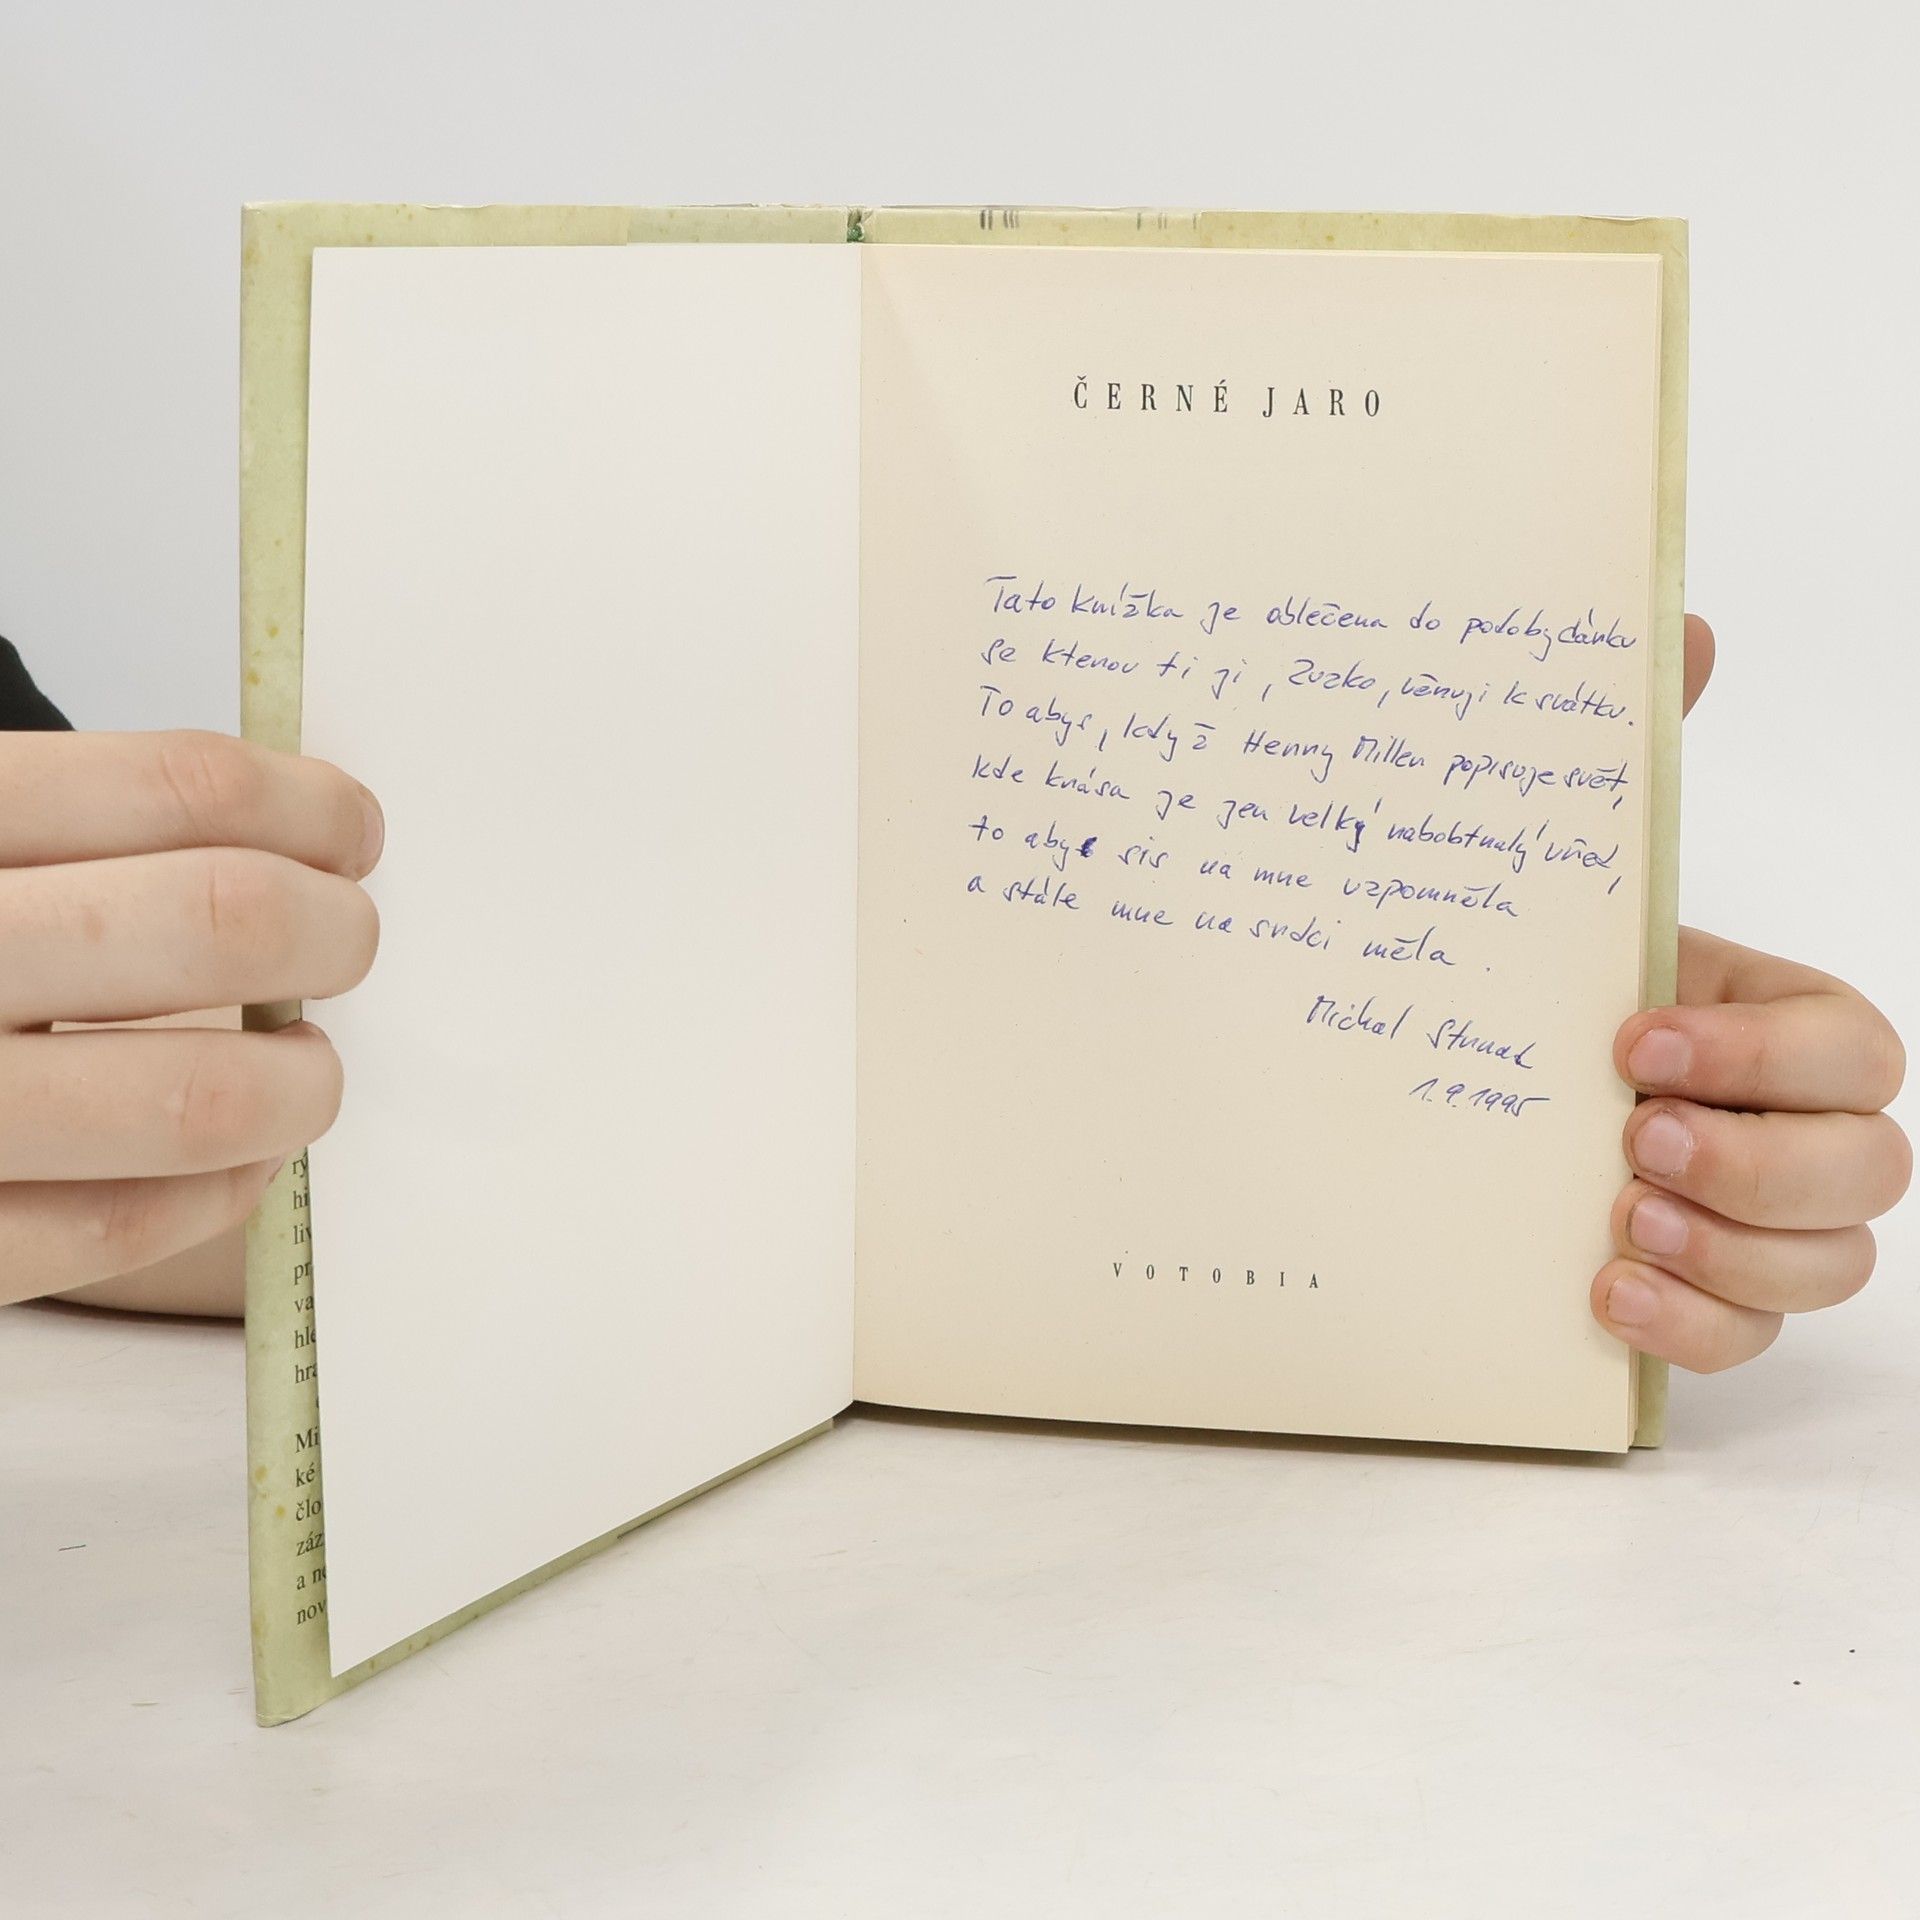 ČERNÉ JARO
Tato knížka je oblečena do podoby dárku
se kterou ti ji, Zuzko, věnuji k svátku.
To abys, když Henry Miller popisuje svět,
kde krása je jen velký nabobtnalý vřed,
to aby sis na mne vzpomněla
a stále mne na srdci měla.
Michal Strnad
1.9.1995
VOTOBIA
rý
hi
liv
pr
va
hle
hra
Mi
ké
člo
záz
a ne
nov